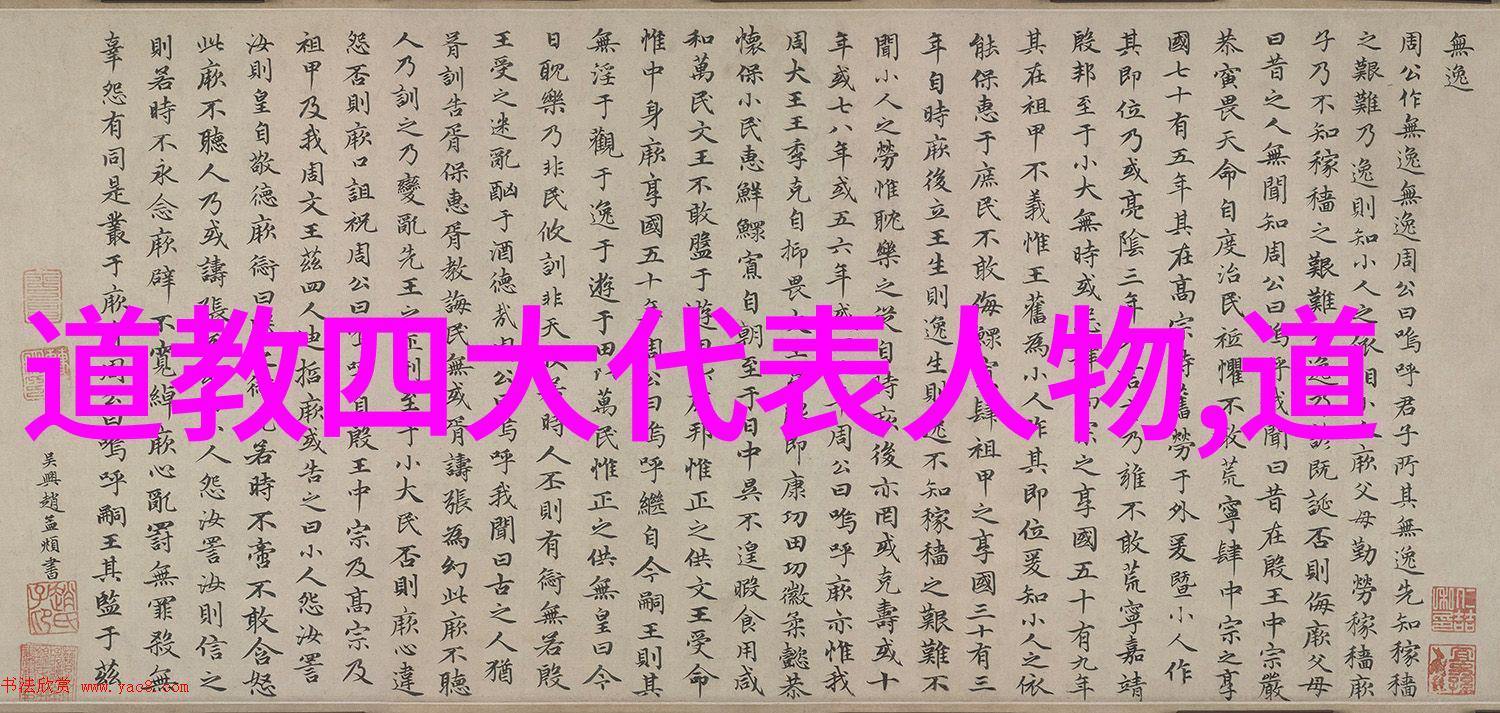 無逸
周公作無逸無逸周公曰嗚呼君子所其無逸先知稼穡
之艱難乃逸則知小人之依相小人厥父母勤勞稼穡厥
子乃不知稼穡之艱難逸乃諺既誕否則侮厥父母
曰昔之人無聞知周公曰嗚呼我聞曰昔在殷王中宗嚴
恭寅畏天命自度治民祗懼不敢荒寧肆中宗之享
國七十有五年其在髙宗時舊勞于外爰暨小人作
其即位乃或亮陰三年言乃雍不敢荒寧嘉靖
殷邦至于小大無時或怨肆宗之享國五十有九年
其在祖甲不義惟王舊為小人作其即位爰知小人之依
能保惠于庶民不敢侮鰥寡肆祖甲之享國三十有三
年自時厥後立王生則逸生則逸不知稼穡之艱難不
聞小人之勞惟耽樂之從自時厥後亦罔或克壽或十
年或七八年或五六年或周公曰嗚呼厥亦惟我
周大王王季克自抑畏即康功田功徽柔懿恭
懷保小民惠鮮鰥寡自朝至于日中昃不遑暇食用咸
和萬民文王不敢盤于遊邦惟正之供文王受命
惟中身厥享國五十年周公曰嗚呼繼自今嗣王則其
無淫于觀于逸于遊于田萬民惟正之供無皇曰今
日耽樂乃非民攸訓非天若時人丕則有愆無若殷
王受之迷亂酗于酒德哉周公曰嗚呼我聞曰古之人猶
胥訓告胥保惠胥教誨民無或胥譸張為幻此厥不聽
人乃訓之乃變亂先王之正刑至于小大民否則厥心違
怨否則厥口詛祝周公曰嗚呼自殷王中宗及髙宗及
祖甲及我周文王茲四人迪哲厥或告之曰小人怨汝詈
汝則皇自敬德厥愆曰若時不啻不敢含怒
此厥不聽人乃或譸張人怨汝詈汝則信之
則若時不永念厥辟不寬綽厥心亂罰無罪殺無
辜怨有同是叢于厥周公曰嗚呼嗣王其監于茲
吳興趙孟頫書
道教四大代表人物,道
书法欣赏 www.yac8.com